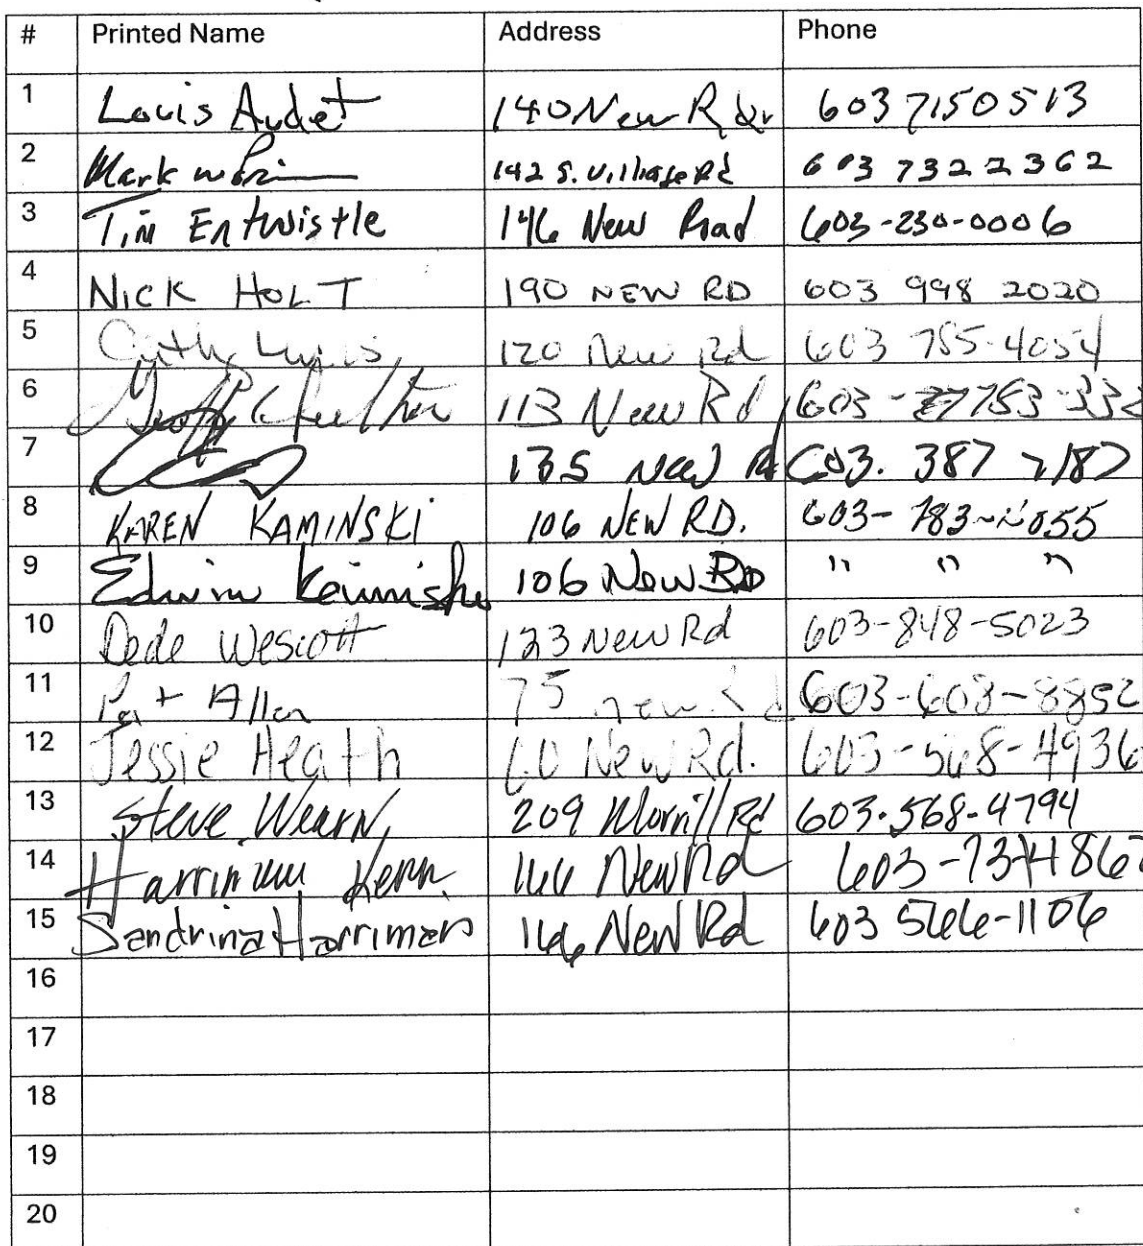 # Printed Name Address Phone
1 Louis Audet 140 New Rd 603 7150513
2 Mark 142 S. Village Rd 603 732 2362
3 Tim Entwistle 146 New Road 603-230-0006
4 NICK HOLT 190 NEW RD 603 998 2020
5 Cathy 120 New Rd 603 755-4054
6 113 New Rd 603-
7 135 New Rd 603. 387 7187
8 KAREN KAMINSKI 106 NEW RD. 603-
9 Edwin 106 New RD " " "
10 Dede Wescott 123 New Rd 603-848-5023
11 Pat Allen 75 New Rd 603-608-8852
12 Jessie Heath 60 New Rd. 603-568-4936
13 Steve Wearn, 209 Morrill Rd 603-568-4794
14 166 New Rd
15 Sandrina Harriman 166 New Rd 603 566-1106
16
17
18
19
20